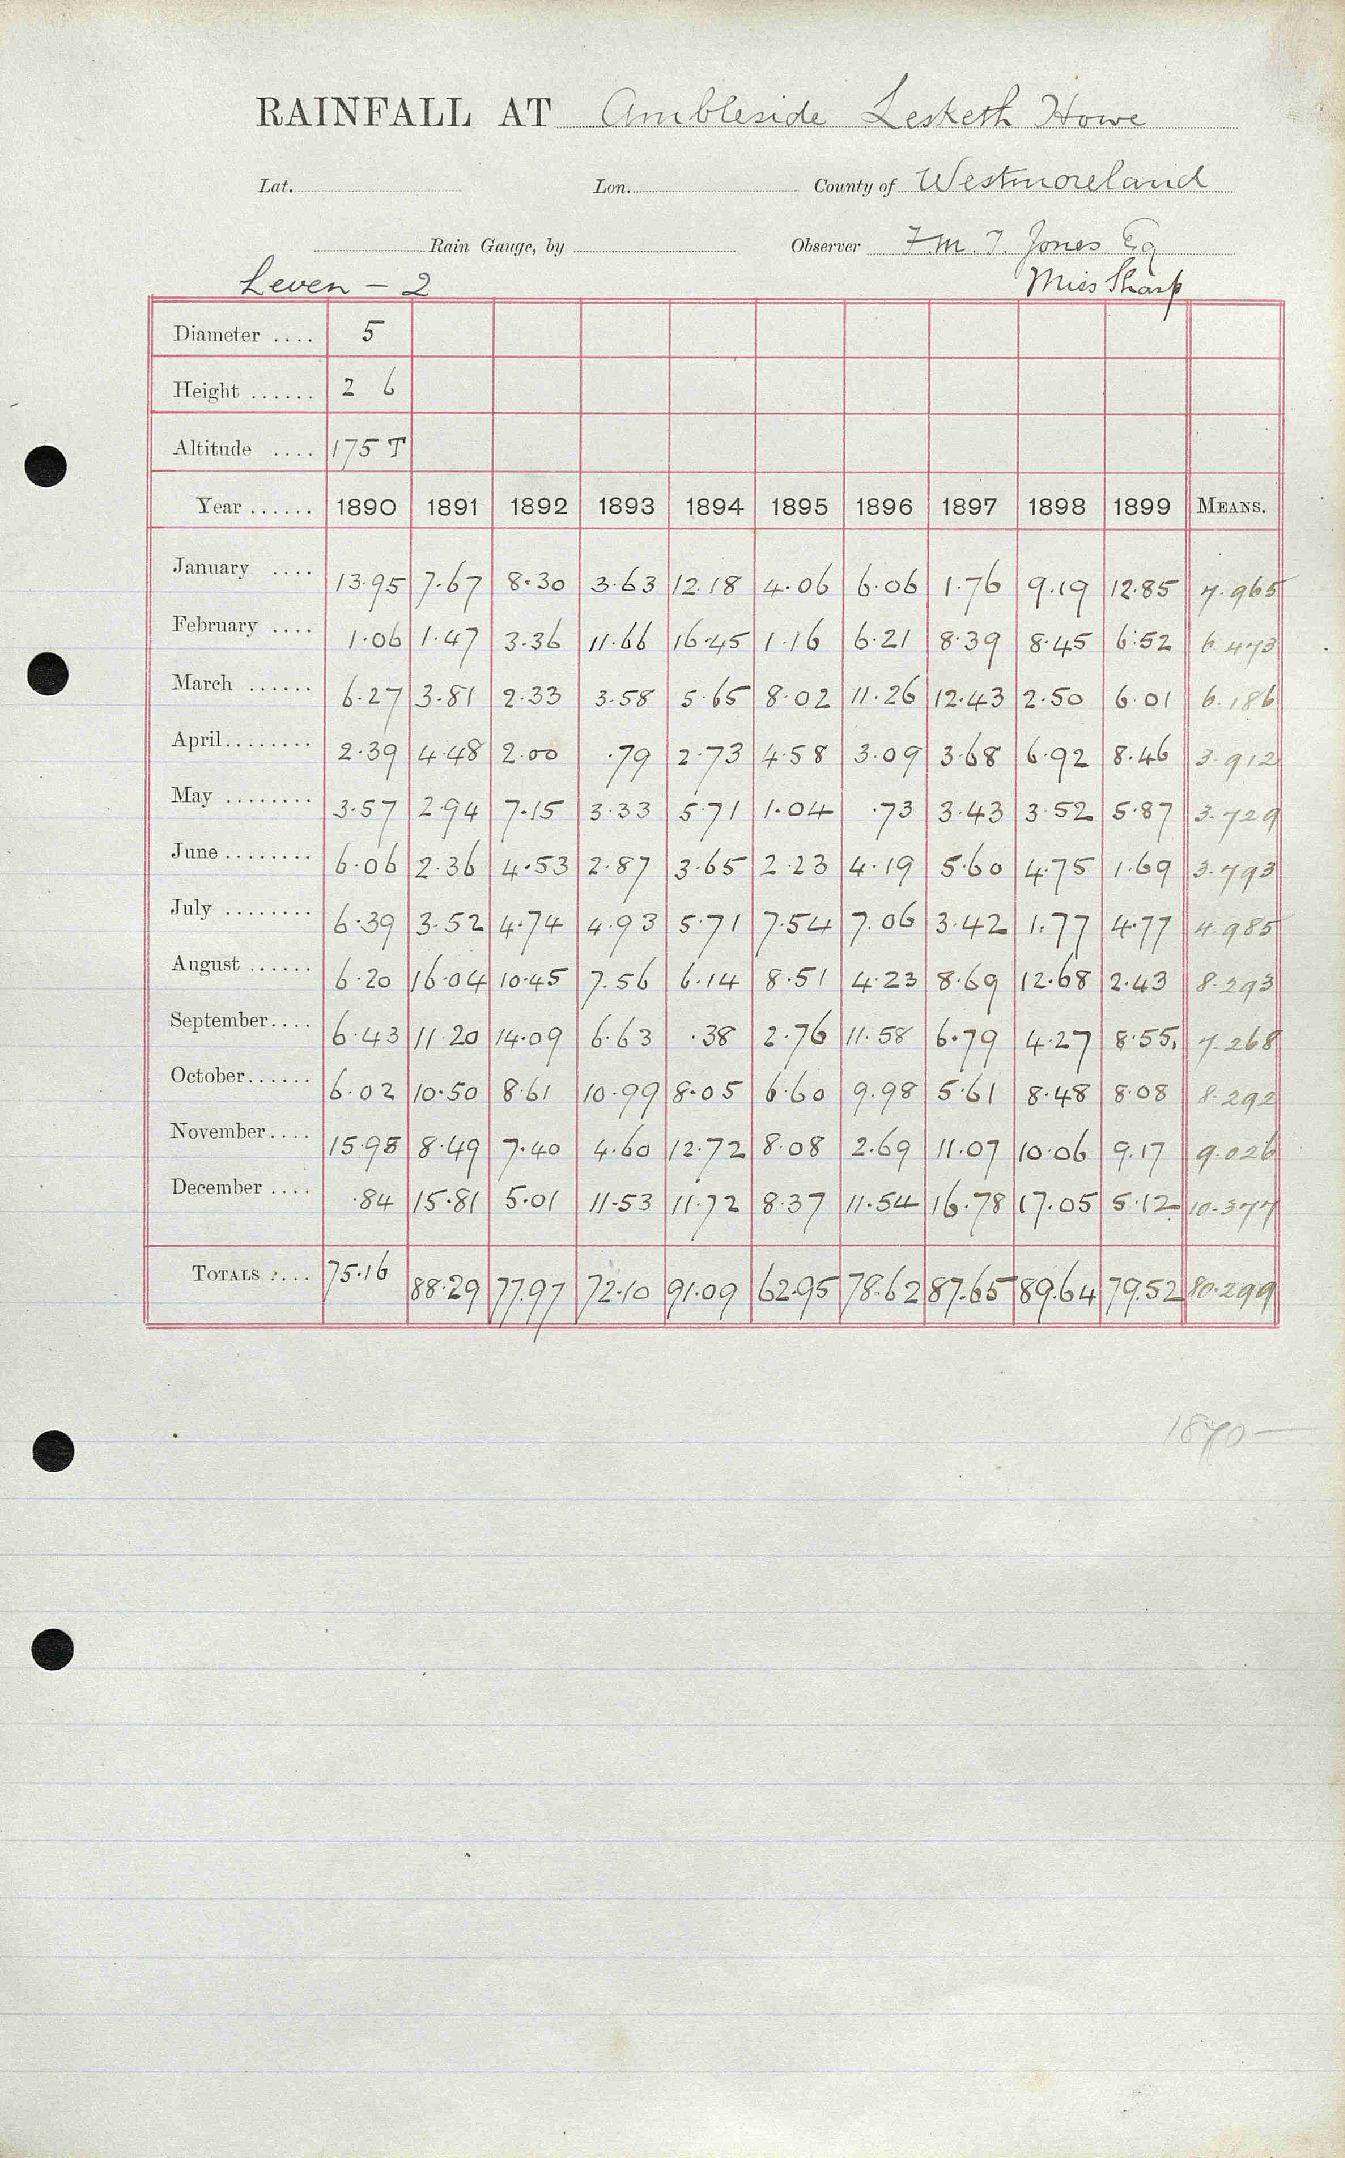 RAINFALL AT Ambleside Lesketh Howe
Lat. Lon. County of Westmoreland
Rain Gauge, by Observer F M. T. Jones Eq
Leven - 2 Miss Sharp
Diameter .... 5
Height ...... 2 6
Altitude .... 175 T
Year ...... 1890 1891 1892 1893 1894 1895 1896 1897 1898 1899 MEANS.
January .... 13.95 7.67 8.30 3.63 12.18 4.06 6.06 1.76 9.19 12.85 7.965
February .... 1.06 1.47 3.36 11.66 16.45 1.16 6.21 8.39 8.45 6.52 6.473
March ...... 6.27 3.81 2.33 3.58 5.65 8.02 11.26 12.43 2.50 6.01 6.186
April ........ 2.39 4.48 2.00 .79 2.73 4.58 3.09 3.68 6.92 8.46 3.912
May ........ 3.57 2.94 7.15 3.33 5.71 1.04 .73 3.43 3.52 5.87 3.729
June ........ 6.06 2.36 4.53 2.87 3.65 2.23 4.19 5.60 4.75 1.69 3.793
July ........ 6.39 3.52 4.74 4.93 5.71 7.54 7.06 3.42 1.77 4.77 4.985
August ...... 6.20 16.04 10.45 7.56 6.14 8.51 4.23 8.69 12.68 2.43 8.293
September .... 6.43 11.20 14.09 6.63 .38 2.76 11.58 6.79 4.27 8.55 7.268
October ...... 6.02 10.50 8.61 10.99 8.05 6.60 9.98 5.61 8.48 8.08 8.292
November .... 15.98 8.49 7.40 4.60 12.72 8.08 2.69 11.07 10.06 9.17 9.026
December .... .84 15.81 5.01 11.53 11.72 8.37 11.54 16.78 17.05 5.12 10.377
TOTALS .... 75.16 88.29 77.97 72.10 91.09 62.95 78.62 87.65 89.64 79.52 80.299
1870 —